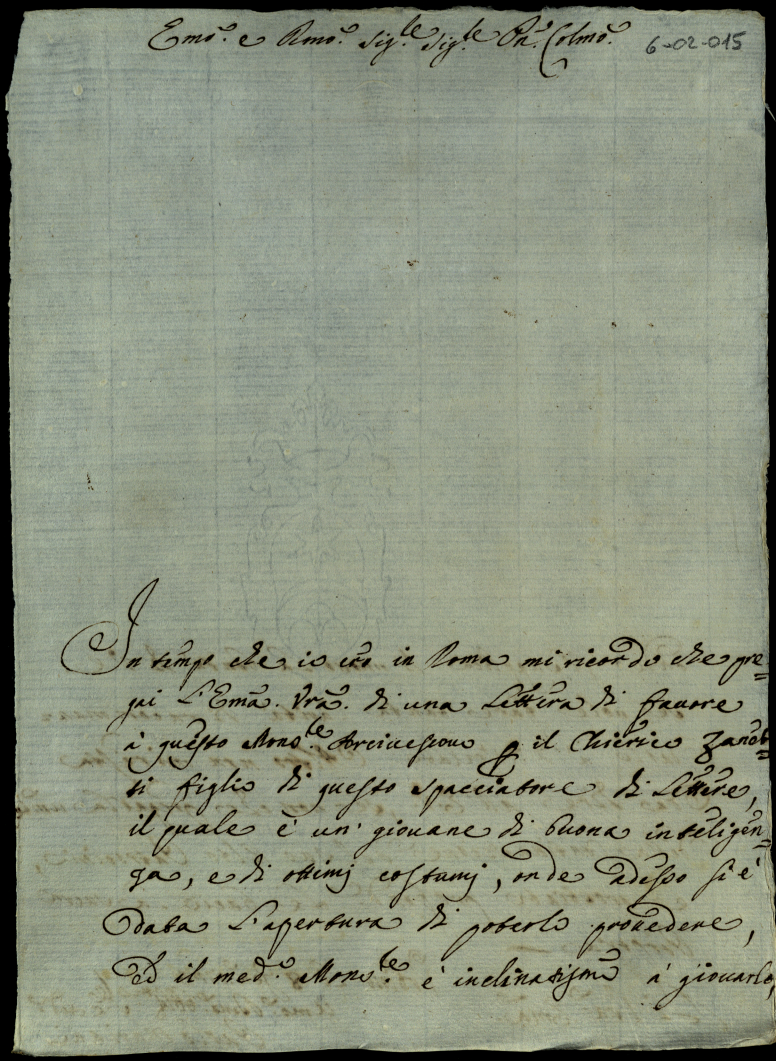 Emo. e Rmo. Sig.le Sig.le Pn. Colmo.
6-02-015
In tempo che io ero in Roma mi ricordo che pre=
gai l'Ema. Vra. di una lettera di favore
à questo Mons.re Arcivescovo p il Chierico Zanob=
ti figlio di questo spacciatore di lettere,
il quale è un' giovane di buona inteligen=
za, e di ottimj costumj, onde adesso si è
data l'apertura di poterlo provedere,
ed il med.o Mons.re è inclinatissimo à giovarlo,